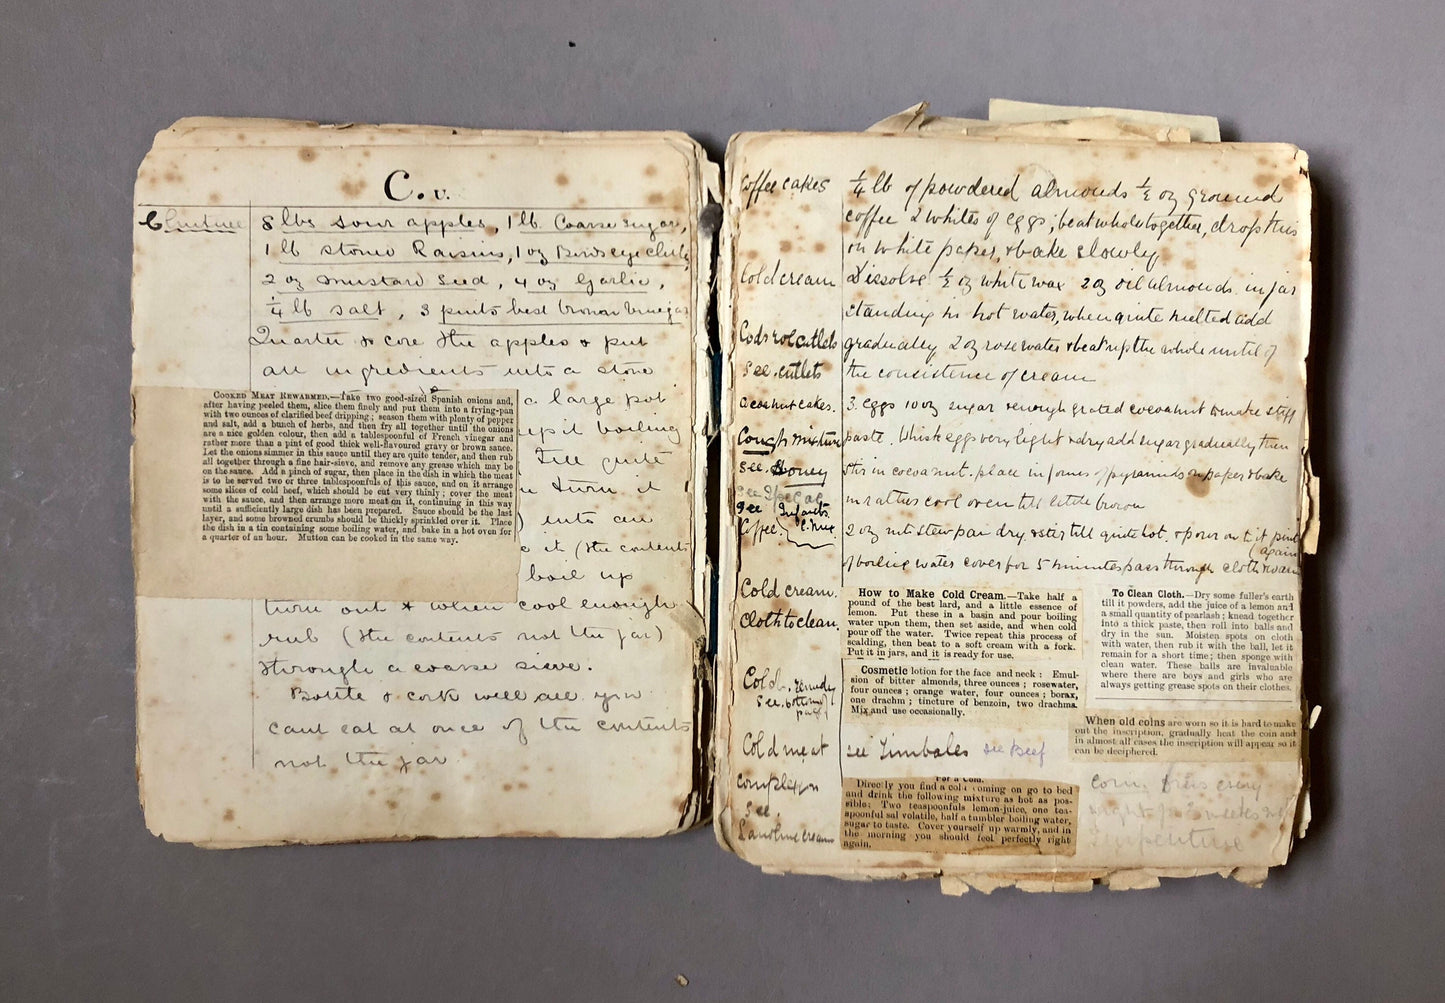 C. u.
Chutnee
8 lbs sour apples, 1 lb. Coarse sugar,
1 lb stoned Raisins, 1 oz Birdseye chili,
2 oz mustard seed, 4 oz Garlic,
1/4 lb salt, 3 pints best brown vinegar
Quarter & core the apples & put
all ingredients into a stone
a large pot
up it boiling
till quite
turn it
) into an
it (the contents
boil up
turn out & when cool enough
rub (the contents not the jar)
through a coarse sieve.
Bottle & cork well all you
cant eat at once of the contents
not the jar
Cooked Meat Rewarmed.—Take two good-sized Spanish onions and,
after having peeled them, slice them finely and put them into a frying-pan
with two ounces of clarified beef dripping; season them with plenty of pepper
and salt, add a bunch of herbs, and then fry all together until the onions
are a nice golden colour, then add a tablespoonful of French vinegar and
rather more than a pint of good thick well-flavoured gravy or brown sauce.
Let the onions simmer in this sauce until they are quite tender, and then rub
all together through a fine hair-sieve, and remove any grease which may be
on the sauce. Add a pinch of sugar, then place in the dish in which the meat
is to be served two or three tablespoonfuls of this sauce, and on it arrange
some slices of cold beef, which should be cut very thinly; cover the meat
with the sauce, and then arrange more meat on it, continuing in this way
until a sufficiently large dish has been prepared. Sauce should be the last
layer, and some browned crumbs should be thickly sprinkled over it. Place
the dish in a tin containing some boiling water, and bake in a hot oven for
a quarter of an hour. Mutton can be cooked in the same way.
Coffee cakes 1/4 lb of powdered almonds 1/2 oz ground
coffee 2 whites of eggs, beat whole together, drop this
on white paper, & bake slowly
Cold cream Dissolve 1/2 oz white wax 2 oz oil almonds in jar
standing in hot water, when quite melted add
Cods roe cutlets gradually 2 oz rose water & beat up the whole until of
see cutlets the consistence of cream
Cocoanut cakes. 3. eggs 10 oz sugar & enough grated cocoanut to make stiff
Cough mixture paste. Whisk eggs very light & dry add sugar gradually then
see. Honey stir in cocoanut. place in forms of pyramids on paper & bake
see Ipecac
see Infants C. Mix. in rather cool oven till little brown
Coffee. 2 oz into stew pan dry. & stir till quite hot. & pour on to it pint
(again
of boiling water cover for 5 minutes pass through cloth & warm
Cold cream.
Cloth to clean.
Cold. remedy
See. bottom of
page
Cold meat see Timbales see Beef
Complexion
See.
Lanoline cream
How to Make Cold Cream.—Take half a
pound of the best lard, and a little essence of
lemon. Put these in a basin and pour boiling
water upon them, then set aside, and when cold
pour off the water. Twice repeat this process of
scalding, then beat to a soft cream with a fork.
Put it in jars, and it is ready for use.
Cosmetic lotion for the face and neck: Emul-
sion of bitter almonds, three ounces; rosewater,
four ounces; orange water, four ounces; borax,
one drachm; tincture of benzoin, two drachms.
Mix and use occasionally.
To Clean Cloth.—Dry some fuller's earth
till it powders, add the juice of a lemon and
a small quantity of pearlash; knead together
into a thick paste, then roll into balls and
dry in the sun. Moisten spots on cloth
with water, then rub it with the ball, let it
remain for a short time; then sponge with
clean water. These balls are invaluable
where there are boys and girls who are
always getting grease spots on their clothes.
When old coins are worn so it is hard to make
out the inscription, gradually heat the coin and
in almost all cases the inscription will appear so it
can be deciphered.
For a Cold.
Directly you find a cold coming on go to bed
and drink the following mixture as hot as pos-
sible: Two teaspoonfuls lemon-juice, one tea-
spoonful sal volatile, half a tumbler boiling water,
sugar to taste. Cover yourself up warmly, and in
the morning you should feel perfectly right
again.
Corn. every
night for 3 weeks with
Turpentine